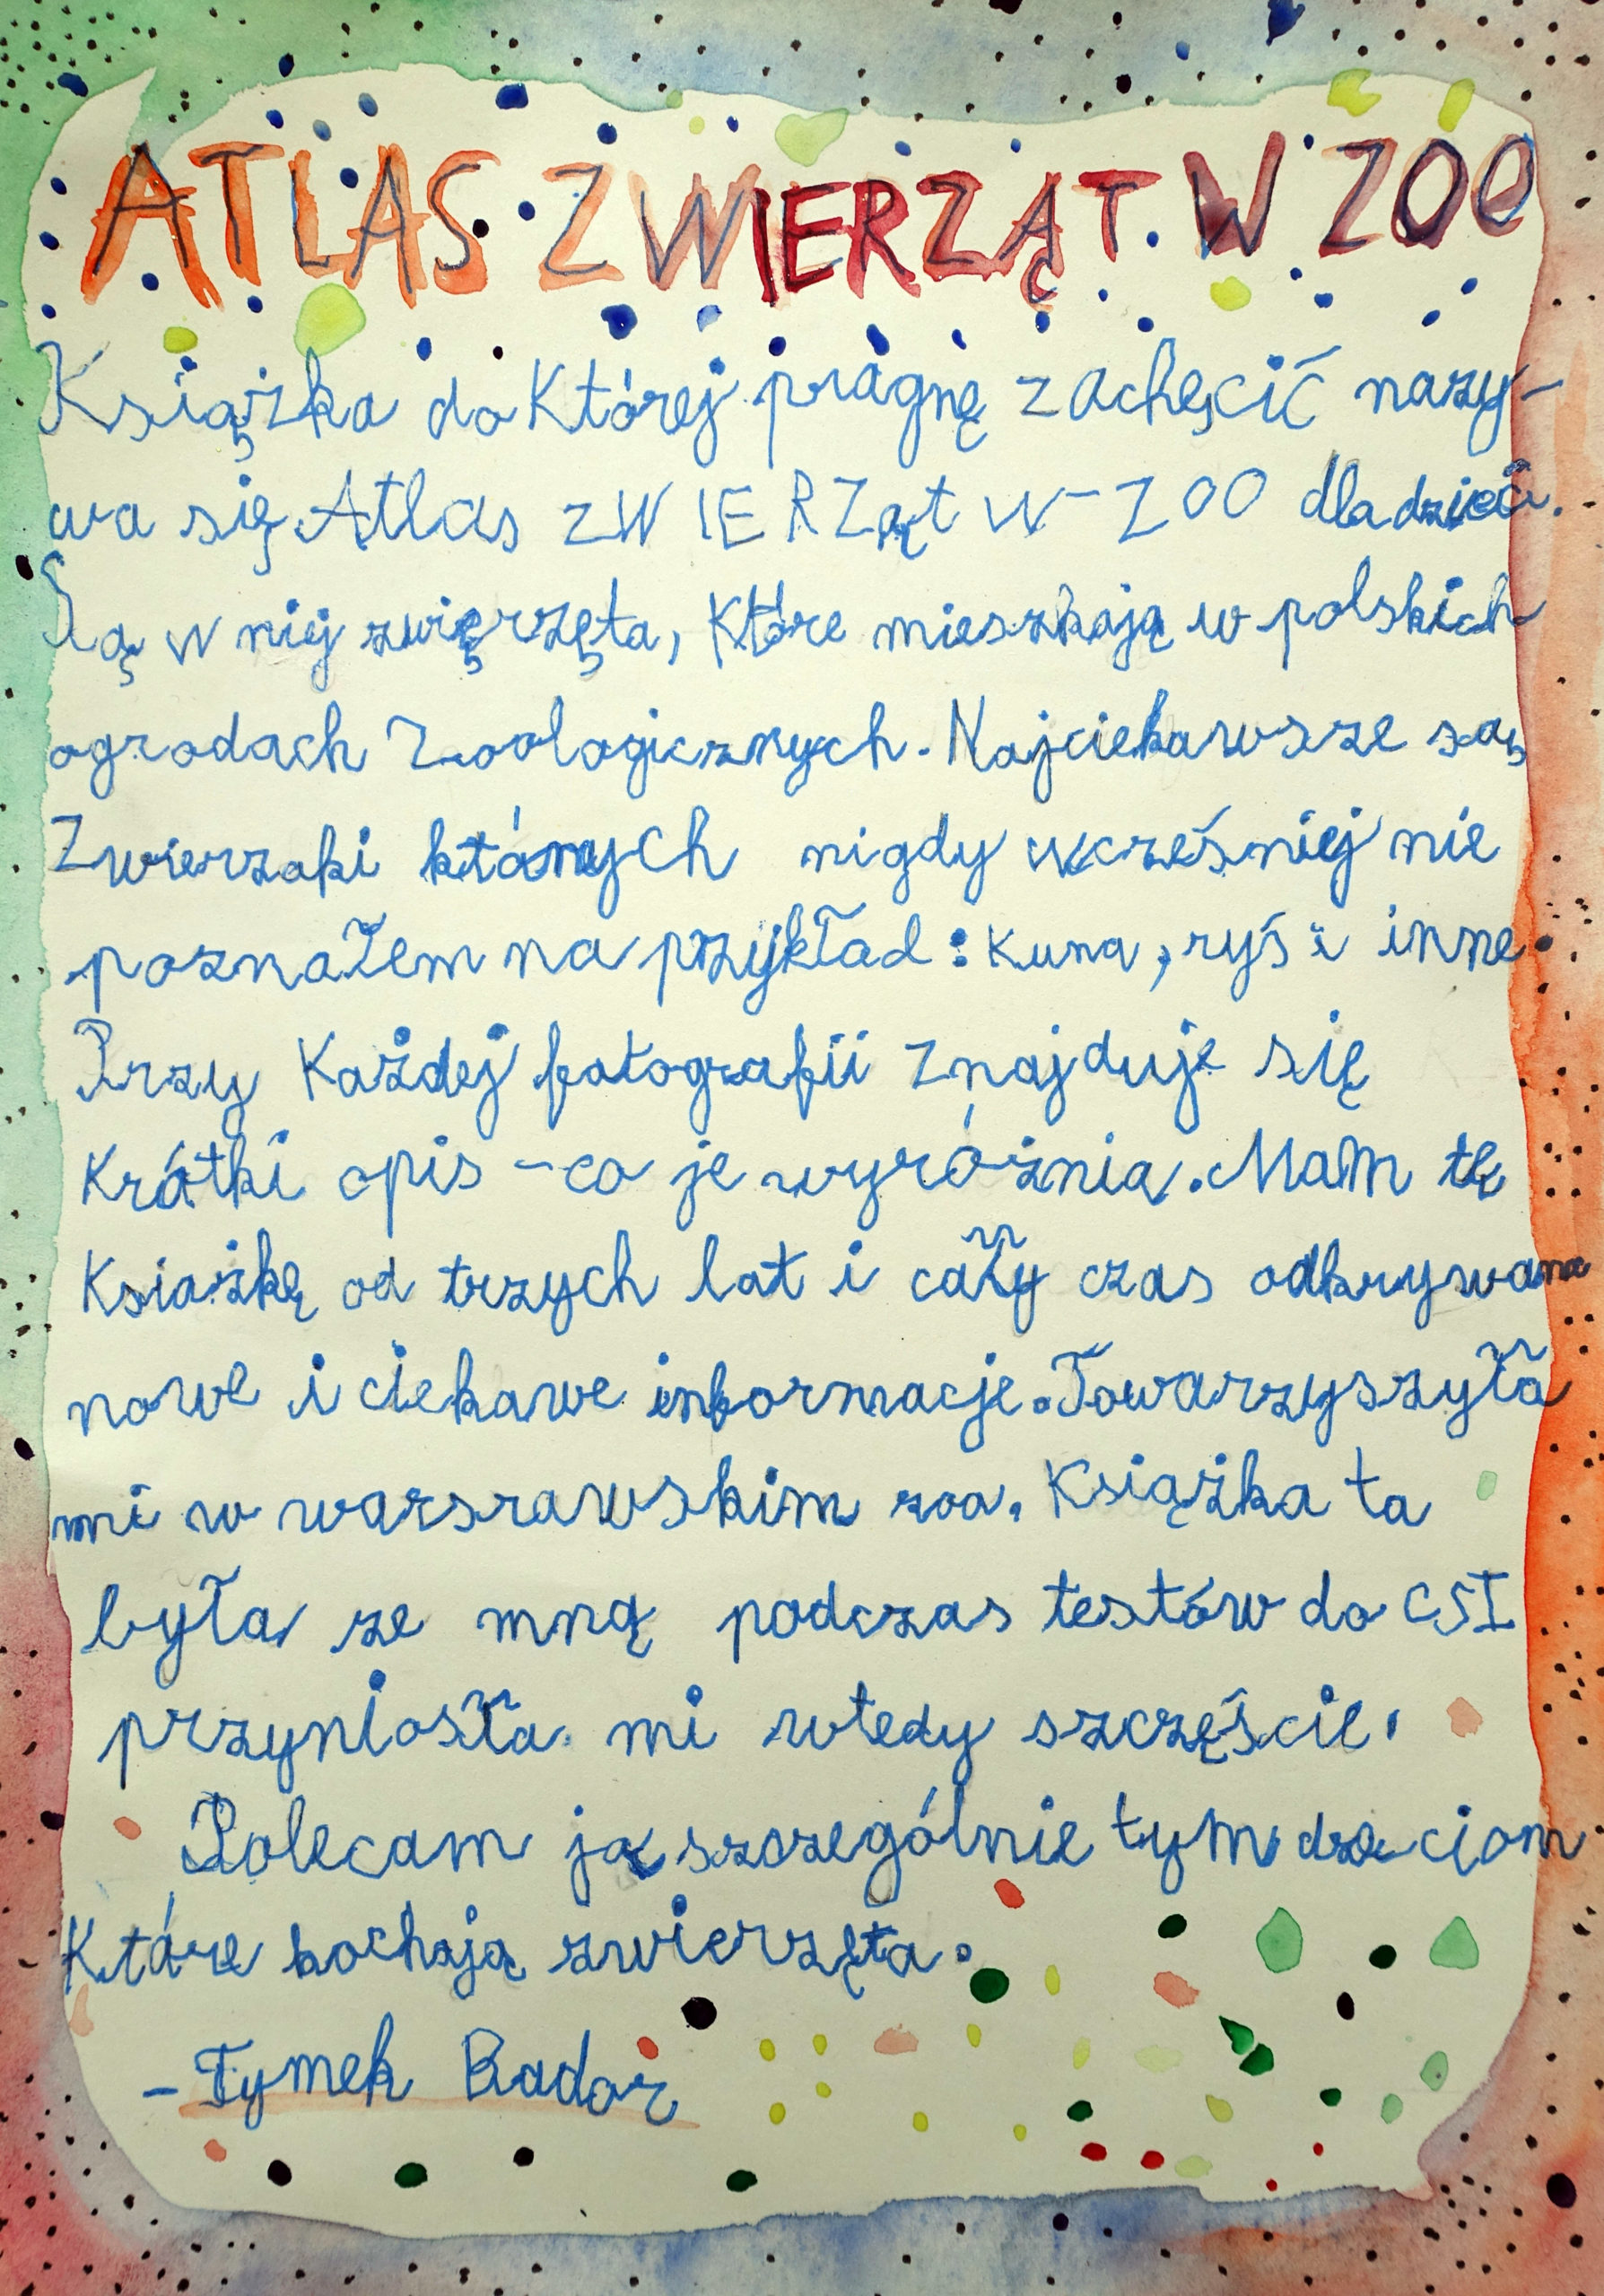 ATLAS ZWIERZĄT W ZOO
Książka do Której pragnę zachęcić nazy-
wa się Atlas ZWIERZąt W ZOO dla dzieci.
Są w niej zwięrzęta, Które mieszkają w polskich
ogrodach Zoologicznych. Najciekawsze są
Zwierzaki których nigdy wcześniej nie
poznałem na przykład: Kuna, ryś i inne.
Przy Każdej fotografii znajduje się
Krótki opis - co je wyróżnia. Mam tę
Ksiażkę od trzych lat i cały czas odkrywam
nowe i ciekawe informacje. Towarzyszyła
mi w warszawskim zoo. Książka ta
była ze mną podczas testów do CSI
przyniosła mi wtedy szczęście.
Polecam ją szczególnie tym
Które kochają zwierzęta.
- Tymek Bador